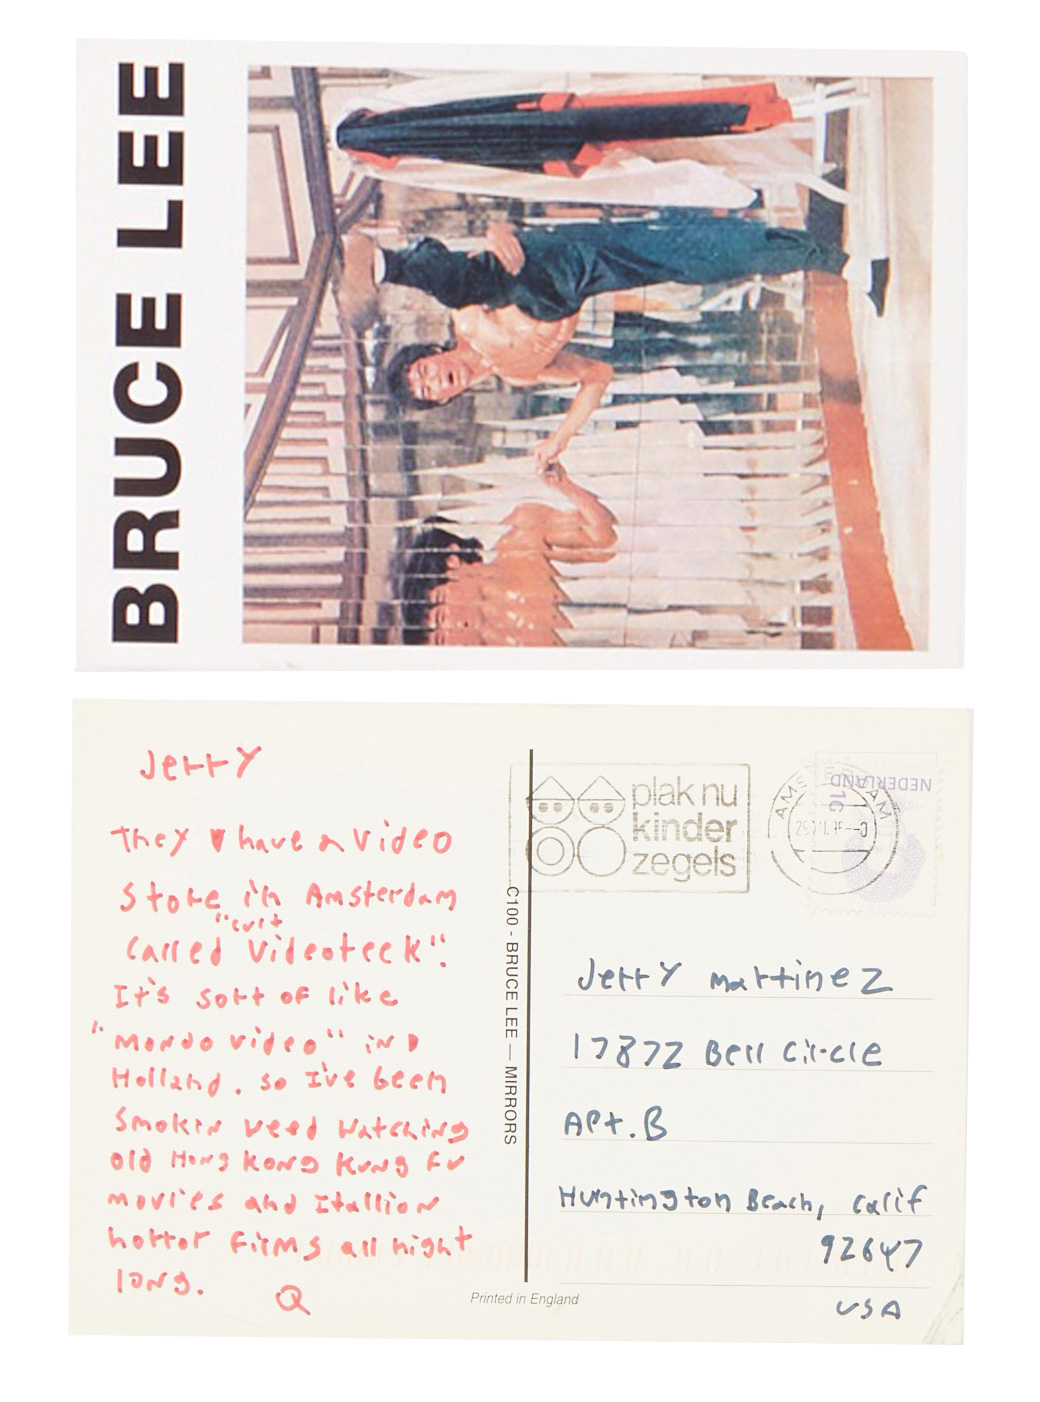 BRUCE LEE
Jerry
they have a video
Store in Amsterdam
"cult
called Videoteek".
It's sort of like
"Mondo video" in
Holland. so I've been
smokin weed watching
old Hong Kong Kung Fu
movies and Itallion
horror films all night
long.
Q
C100 - BRUCE LEE — MIRRORS
Printed in England
plak nu
kinder
zegels
AMSTERDAM
NEDERLAND
Jerry Martinez
17872 Bell Circle
Apt. B
Huntington Beach, Calif
92647
USA